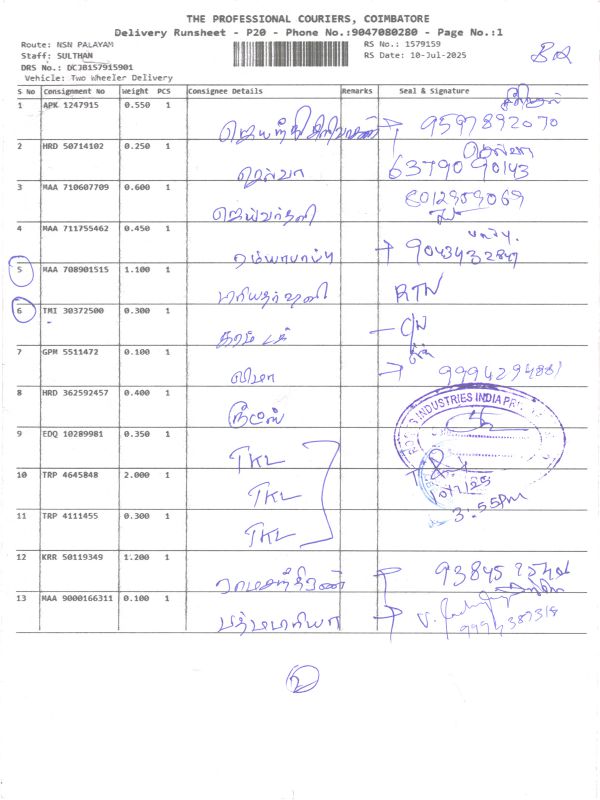 THE PROFESSIONAL COURIERS, COIMBATORE
Delivery Runsheet - P20 - Phone No.:9047080280 - Page No.:1
Route: NSN PALAYAM
RS No.: 1579159
Staff: SULTHAN
RS Date: 10-Jul-2025
DRS No.: DCJB157915901
Vehicle: Two Wheeler Delivery
S No Consignment No Weight PCS Consignee Details Remarks Seal & Signature
1 APK 1247915 0.550 1
9597892070
2 HRD 50714102 0.250 1
ஜெல்வா 6379090143
3 MAA 710607709 0.600 1
8012909069
4 MAA 711755462 0.450 1
ரம்யாபாப்பு 9043432847
5 MAA 708901515 1.100 1
RTN
6 TMI 30372500 0.300 1
7 GPM 5511472 0.100 1
லிமா 9994294881
8 HRD 362592457 0.400 1
INDUSTRIES INDIA
9 EDQ 10289981 0.350 1
TKL
10 TRP 4645848 2.000 1
TKL
10/7/25
3:55pm
11 TRP 4111455 0.300 1
TKL
12 KRR 50119349 1.200 1
ராமசந்திரன்
13 MAA 9000166311 0.100 1
பத்மபிரியா
2